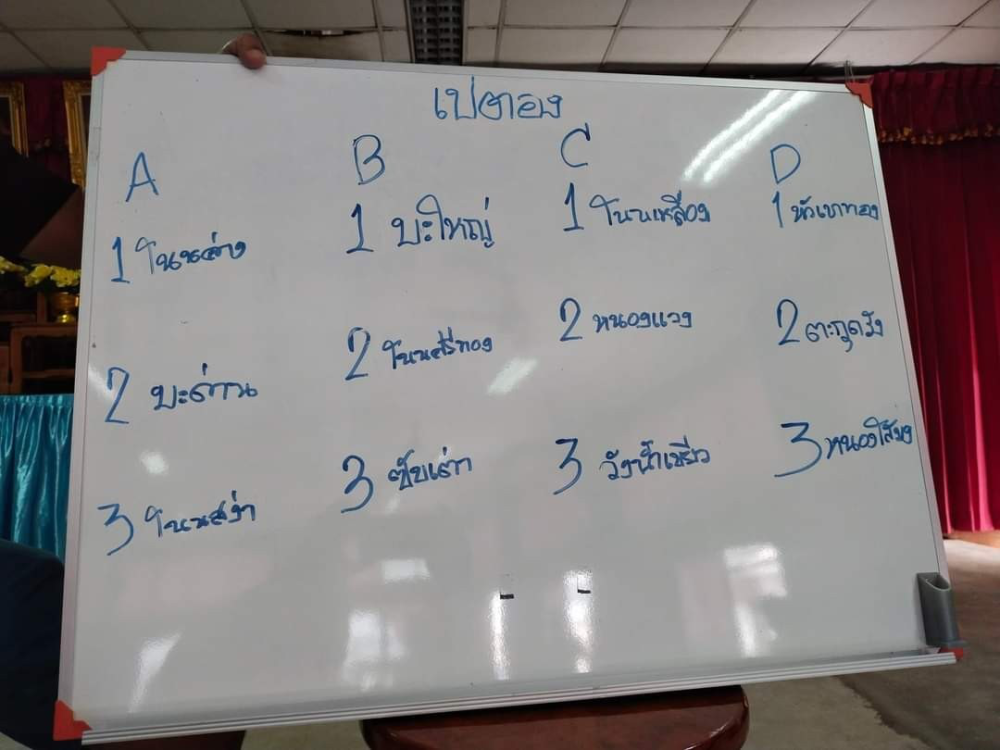 เปตอง
A
1 โนนค่าง
2 มะค่าน
3 โนนสง่า
B
1 บะใหญ่
2 โนนศรีทอง
3 ซับเต่า
C
1 โนนเหลือง
2 หนองแวง
3 วังน้ำเขียว
D
1 หัวเขาทอง
2 ตะกุดรัง
3